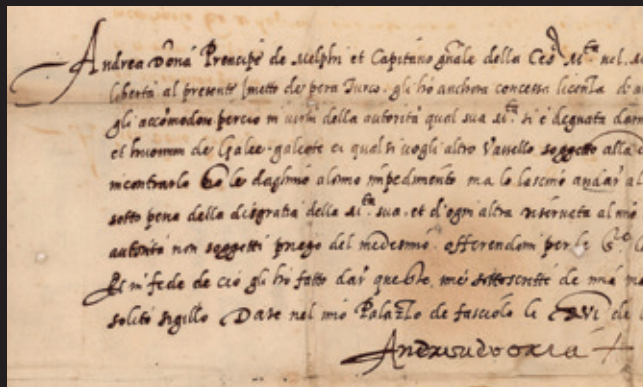 Andrea Doria Prencipe de Melphi et Capitano gnale della Ces.ª M.tà nel
liberta al presente Imetto de pera Turco. gli ho anchora concessa licenza d'a
gli accomodon percio in virtu della autorità qual sua M.tà si è degnata
et huomini de Galee galeote et qual si vogli altro Vassello soggetto alla
incontrarlo no le daghino alcuno impedimento ma lo lascino andar a
sotto pena della disgratia della M.tà sua, et d'ogni altra reservata al mio
autorità non soggetti priego del medesimo offerendomi per le
Et in fede de ciò gli ho fatto dar questo, mei sottoscritte de mia
solito sigillo Date nel mio Palazzo de fasciolo le XVI de
Andreadoria